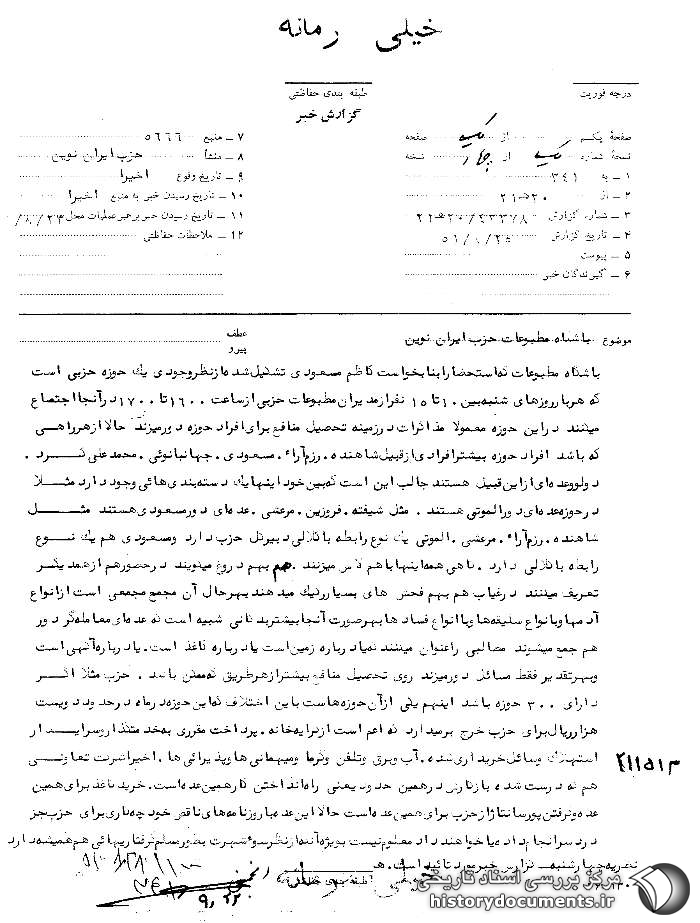 خیلی رمانه
طبقه بندی حفاظتی
درجه فوریت
گزارش خبر
صفحهٔ یکم از یک صفحه
نسخهٔ شماره یک از چهار نسخه
۱ ـ به ۳٤۱
۲ ـ از ۲۰ ه ۲۱
۳ ـ شماره گزارش ۲۳۳۷۸ / ۲۰ ه ۲۱
٤ ـ تاریخ گزارش
۵ ـ پیوست
۶ ـ گیرندگان خبر
۷ ـ منبع ۵۶۶۶
۸ ـ منشأ حزب ایران نوین
۹ ـ تاریخ وقوع اخیرا
۱۰ ـ تاریخ رسیدن خبر به منبع اخیرا
۱۱ ـ تاریخ رسیدن خبر برهبر عملیات محل
۱۲ ـ ملاحظات حفاظتی
موضوع باشگاه مطبوعات حزب ایران نوین
عطف
پیرو
باشگاه مطبوعات که استحضار دارید بنا بخواست کاظم مسعودی تشکیل شده از نظر وجودی یک حوزه حزبی است
که هر بار روزهای شنبه بین ۱۰ تا ۱۵ نفر از مدیران مطبوعات حزبی از ساعت ۱۶۰۰ تا ۱۷۰۰ در آنجا اجتماع
میکنند در این حوزه معمولا مذاکرات در زمینه تحصیل منافع برای افراد حوزه دور میزند حالا از هر راهی
که باشد افراد حوزه بیشتر افرادی از قبیل شاهنده . رزم آراء . مسعودی . جهانبانوئی . محمدعلی
دولو و عده ای از این قبیل هستند جالب این است که بین خود اینها یک دسته بندی هائی وجود دارد مثلا
در حوزه عده ای دور الموتی هستند . مثل شیفته . فروزین . مرعشی . عده ای دور مسعودی هستند مثل
شاهنده . رزم آراء . مرعشی . الموتی یک نوع رابطه با کلالی دبیرکل حزب دارد و مسعودی هم یک نوع
رابطه با کلالی دارد . گاهی همه اینها با هم میزنند . هم بهم دروغ میگویند در حضور هم از همدیگر
تعریف میکنند در غیاب هم بهم فحش های بسیار رکیک میدهند بهرحال آن مجمع مجمعی است از انواع
آدمها و با انواع سلیقه ها و با انواع فساد ها بهر صورت آنجا بیشتر بدکانی شبیه است که عده ای معامله گر دور
هم جمع میشوند مطالبی را عنوان میکنند که یا درباره زمین است یا درباره کاغذ است . یا درباره آگهی است
و بهر تقدیر فقط مسائل دور میزند روی تحصیل منافع بیشتر از هر طریق که ممکن باشد . حزب مثلا اگر
دارای ۳۰۰ حوزه باشد اینهم یکی از آن حوزه هاست با این اختلاف که این حوزه در ماه در حدود دویست
هزار ریال برای حزب خرج برمیدارد که اعم است از کرایه خانه . پرداخت مقرری به خدمتگذار و سرایدار
استهلاک وسائل خریداری شده . آب و برق و تلفن و گرما و میهمانی ها و پذیرائی ها . اخیرا شرکت تعاونی
هم که درست شده باز کارش در همین حدود یعنی راه انداختن کار همین عده است . خرید کاغذ برای همین
عده و گرفتن پورسانتاژ از حزب برای همین عده است حالا این عده با روزنامه های ناقص خود چه کاری برای حزب جز
درد سر انجام داده یا خواهند داد معلوم نیست بویژه آنکه از نظر سوء شهرت بطور مسلم گرفتاریهائی هم همیشه دارد
نظریه چهارشنبه ـ گزارش خبر مورد تائید است . هـ
۲۱۱۵۱۳
طبقه بندی حفاظتی
مرکز بررسی اسناد تاریخی
historydocuments.ir